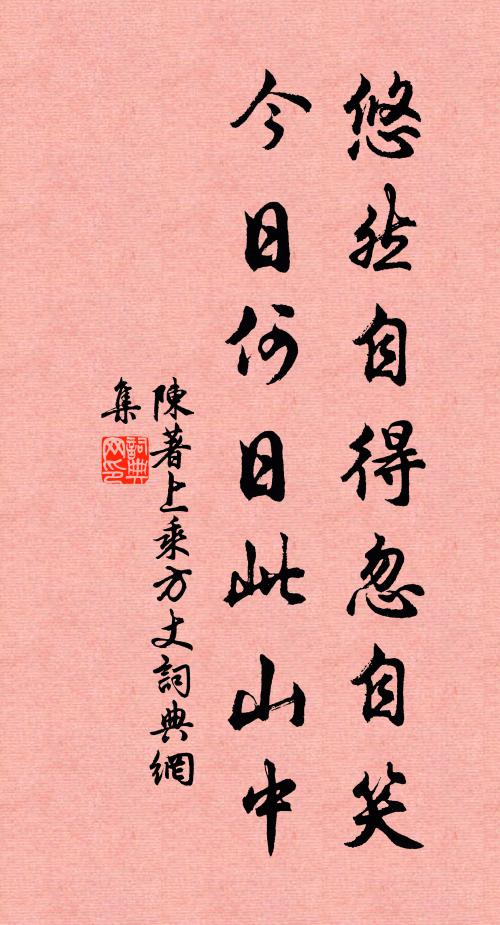 悠然自得忽自笑
今日何日此山中
陳著上乘方丈詞典網
集
詞典網印